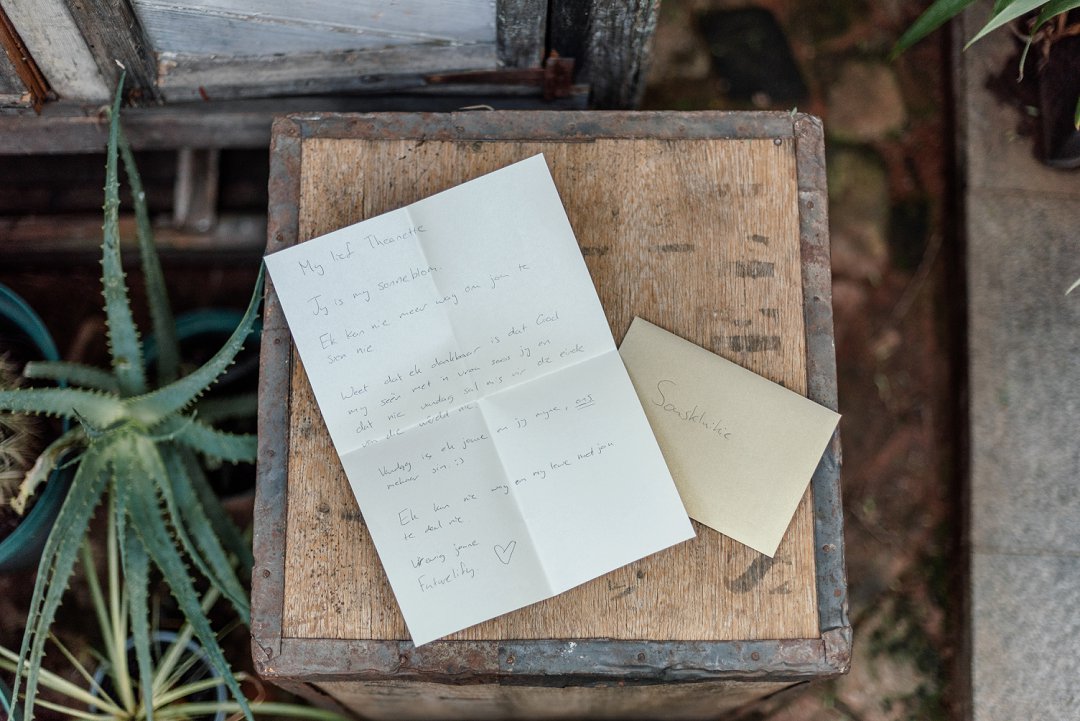 My lief Theanette
Jy is my sonneblom.
Ek kan nie meer wag om jou te
sien nie
Weet dat ek dankbaar is dat God
my seën met 'n vrou soos jy en
dat nie vandag sal ons vir die einde
van die wêreld nie
Vandag is ek joune en jy myne, ons
mekaar s'n. :)
Ek kan nie wag om my lewe met jou
te deel nie
Vrewig joune